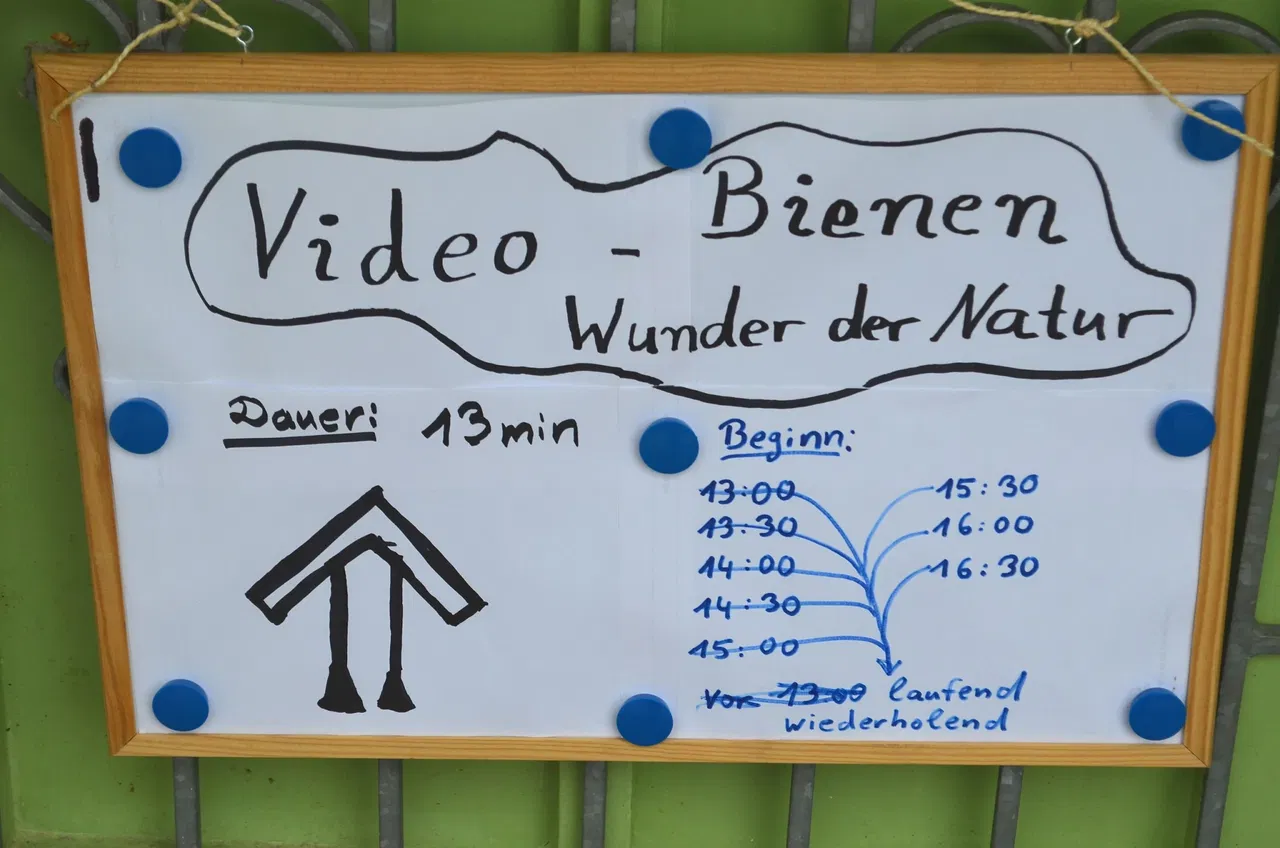 Video - Bienen
Wunder der Natur
Dauer: 13 min
Beginn:
13:00
13:30
14:00
14:30
15:00
15:30
16:00
16:30
Vor 13:00 laufend
wiederholend